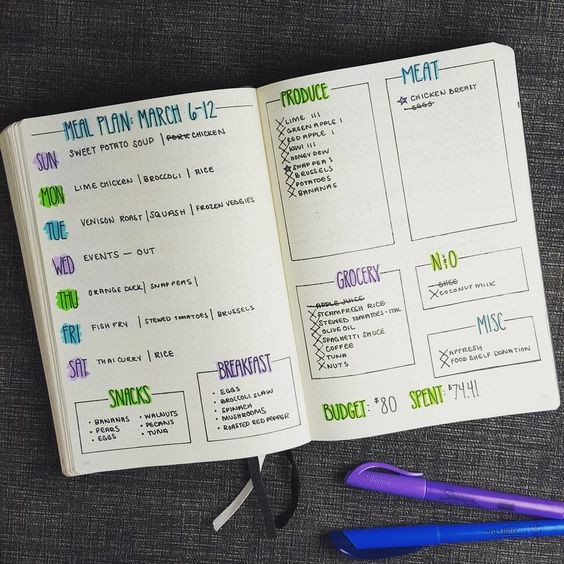 MEAL PLAN: MARCH 6-12
SUN SWEET POTATO SOUP | PORK CHICKEN
MON LIME CHICKEN | BROCCOLI | RICE
TUE VENISON ROAST | SQUASH | FROZEN VEGGIES
WED EVENTS — OUT
THU ORANGE DUCK | SNAP PEAS |
FRI FISH FRY | STEWED TOMATOES | BRUSSELS
SAT THAI CURRY | RICE
SNACKS
• BANANAS
• PEARS
• EGGS
• WALNUTS
• PECANS
• TUNA
BREAKFAST
• EGGS
• BROCCOLI SLAW
• SPINACH
• MUSHROOMS
• ROASTED RED PEPPER
PRODUCE
LIME III
GREEN APPLE I
RED APPLE I
KIWI III
HONEY DEW
SNAP PEAS
BRUSSELS
POTATOES
BANANAS
MEAT
CHICKEN BREAST
EGGS
GROCERY
APPLE JUICE
STEAMFRESH RICE
STEWED TOMATOES-ITAL
OLIVE OIL
SPAGHETTI SAUCE
COFFEE
TUNA
NUTS
GHEE
COCONUT MILK
MISC
AFFRESH
FOOD SHELF DONATION
BUDGET: $80 SPENT: $74.41
Sharpie